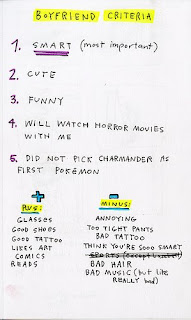 BOYFRIEND CRITERIA
1. SMART (most important)
2. CUTE
3. FUNNY
4. WILL WATCH HORROR MOVIES
WITH ME
5. DID NOT PICK CHARMANDER AS
FIRST POKÉMON
+
PLUS:
GLASSES
GOOD SHOES
GOOD TATTOO
LIKES ART
COMICS
READS
-
MINUS:
ANNOYING
TOO TIGHT PANTS
BAD TATTOO
THINK YOU'RE SOOO SMART
SPORTS (except
BAD HAIR
BAD MUSIC (but like
REALLY bad)